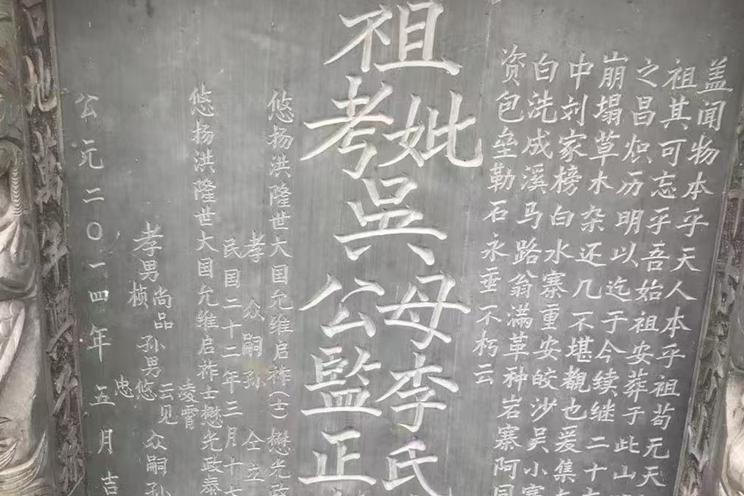 盖闻物本乎天人本乎祖苟无天
祖其可忘乎吾始祖安葬于此山
之昌炽历明以迄于今续继二十
崩塌草木杂还几不堪觀也爰集
中刘家榜白水寨重安皎沙吴小寨
白洗成溪马路翁满革种岩寨阿
资包垒勒石永垂不朽云
祖妣
考
吳
母李氏
公監正
悠扬洪隆世大国允维启祚(士)懋光政
孝众嗣孙 仝立
民国二十二年三月十七
悠扬洪隆世大国允维启祚士懋光政泰
凌霄
孝男尚品孙男云见众嗣孙
桢 悠
忠
公元二〇一四年五月吉